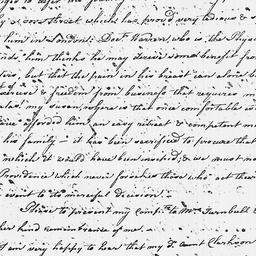 & over Street which has prov'd very tedious & 
him in London: Doct. Warren, who is the Phys
side him thinks he may derive some benefit from
tion, but that the pain in his breast can alone b
exercise & freedom from business that requires m
alas! my own, when that once comfortable
have afforded him an easy retreat & competent m
his family – it has been sacrificed to procure that
which it would have been needed, & we must not
Providence which never forsakes those who act their
event to its merciful decision.
Please to present my Comp.ts to Mr. Turnbull &
her kind remembrance of me.
I am very happy to hear that my Aunt Clarkson